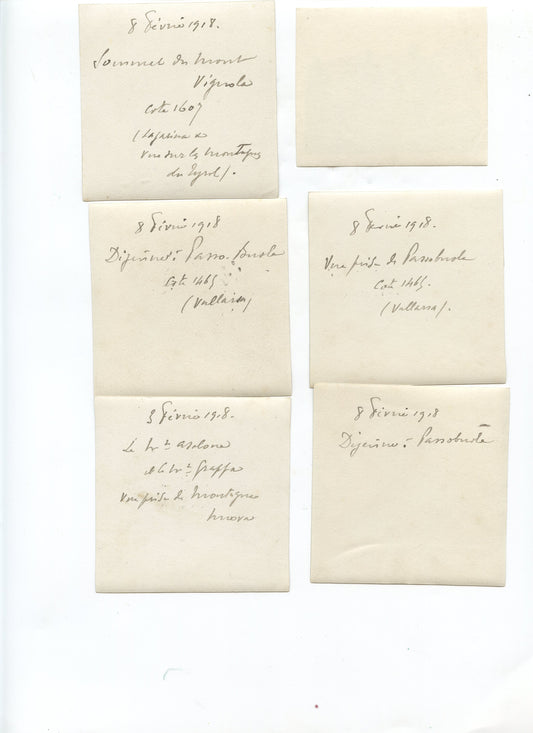 8 Février 1918.
Sommet du Mont
Vignola
Cote 1607
(Lagarina &
Vue sur les Montagnes
du Tyrol).
8 Février 1918
Déjeuner à Passo-Buole
Cote 1465
(Vallarsa)
8 Février 1918.
Vue prise de Passobuole
Cote 1465.
(Vallarsa).
3 Février 1918.
Le Mt Asolone
et le Mt Grappa
Vue prise de Montagna
Nuova
8 Février 1918
Déjeuner à Passobuole